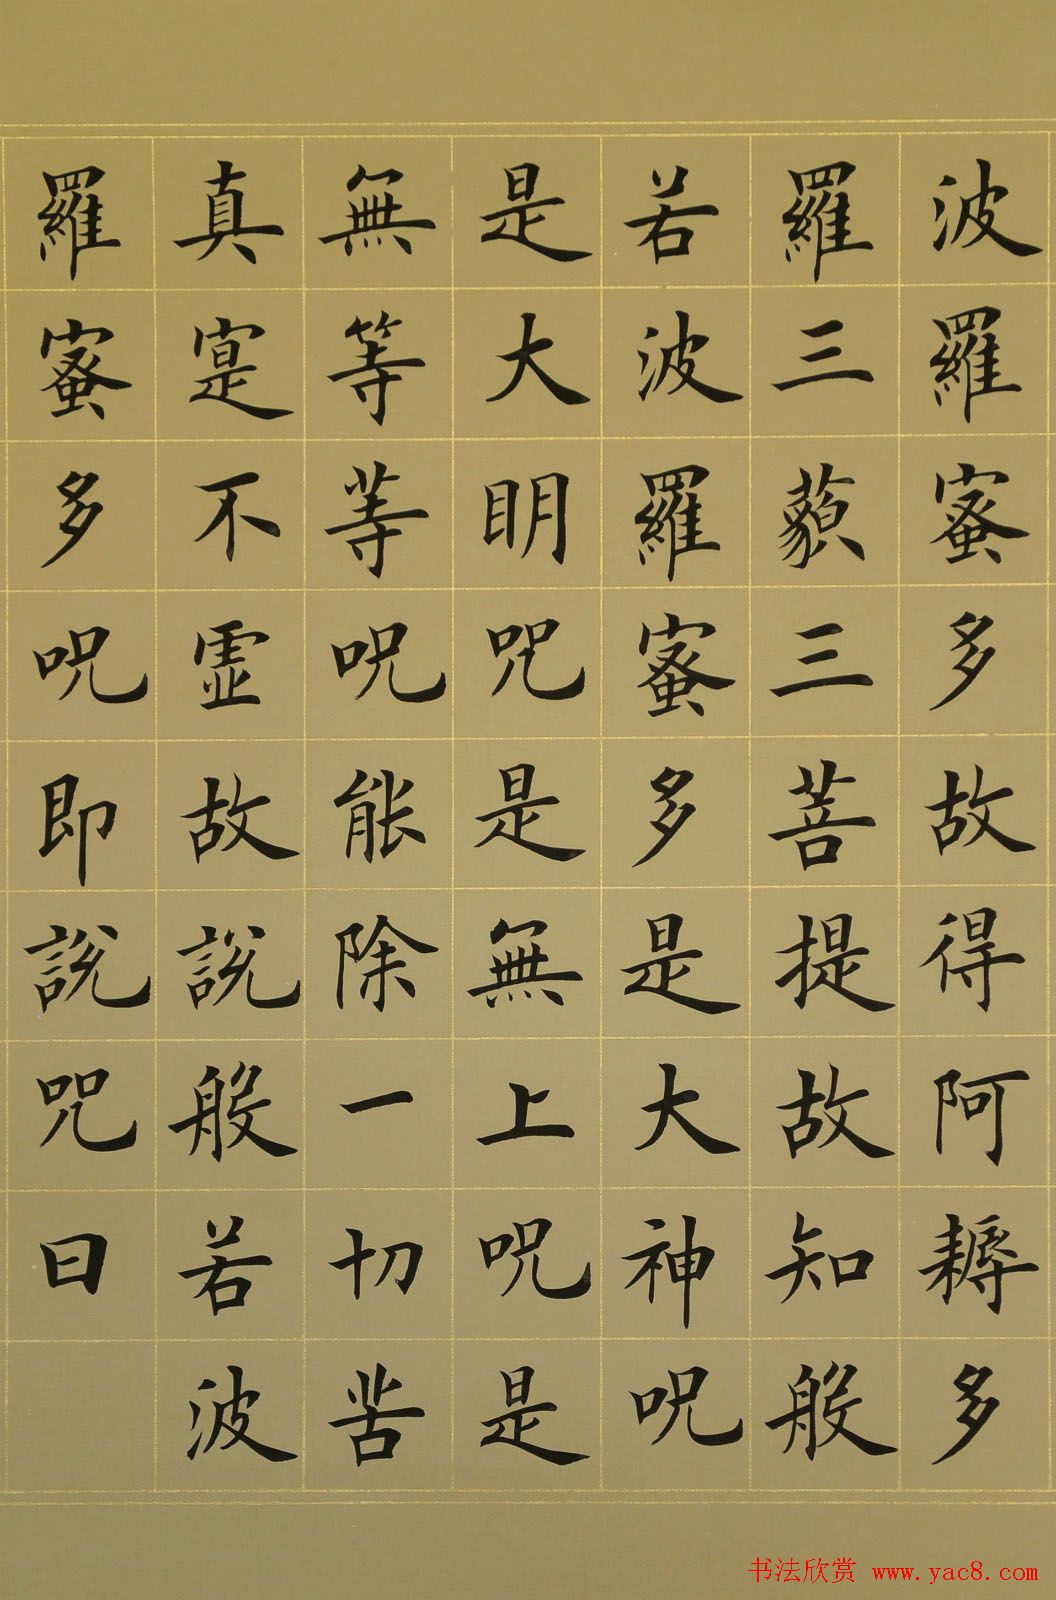 波羅蜜多故得阿耨多
羅三藐三菩提故知般
若波羅蜜多是大神呪
是大明咒是無上呪是
無等等呪能除一切苦
真寔不虛故說般若波
羅蜜多呪即說咒曰
书法欣赏 www.yac8.com